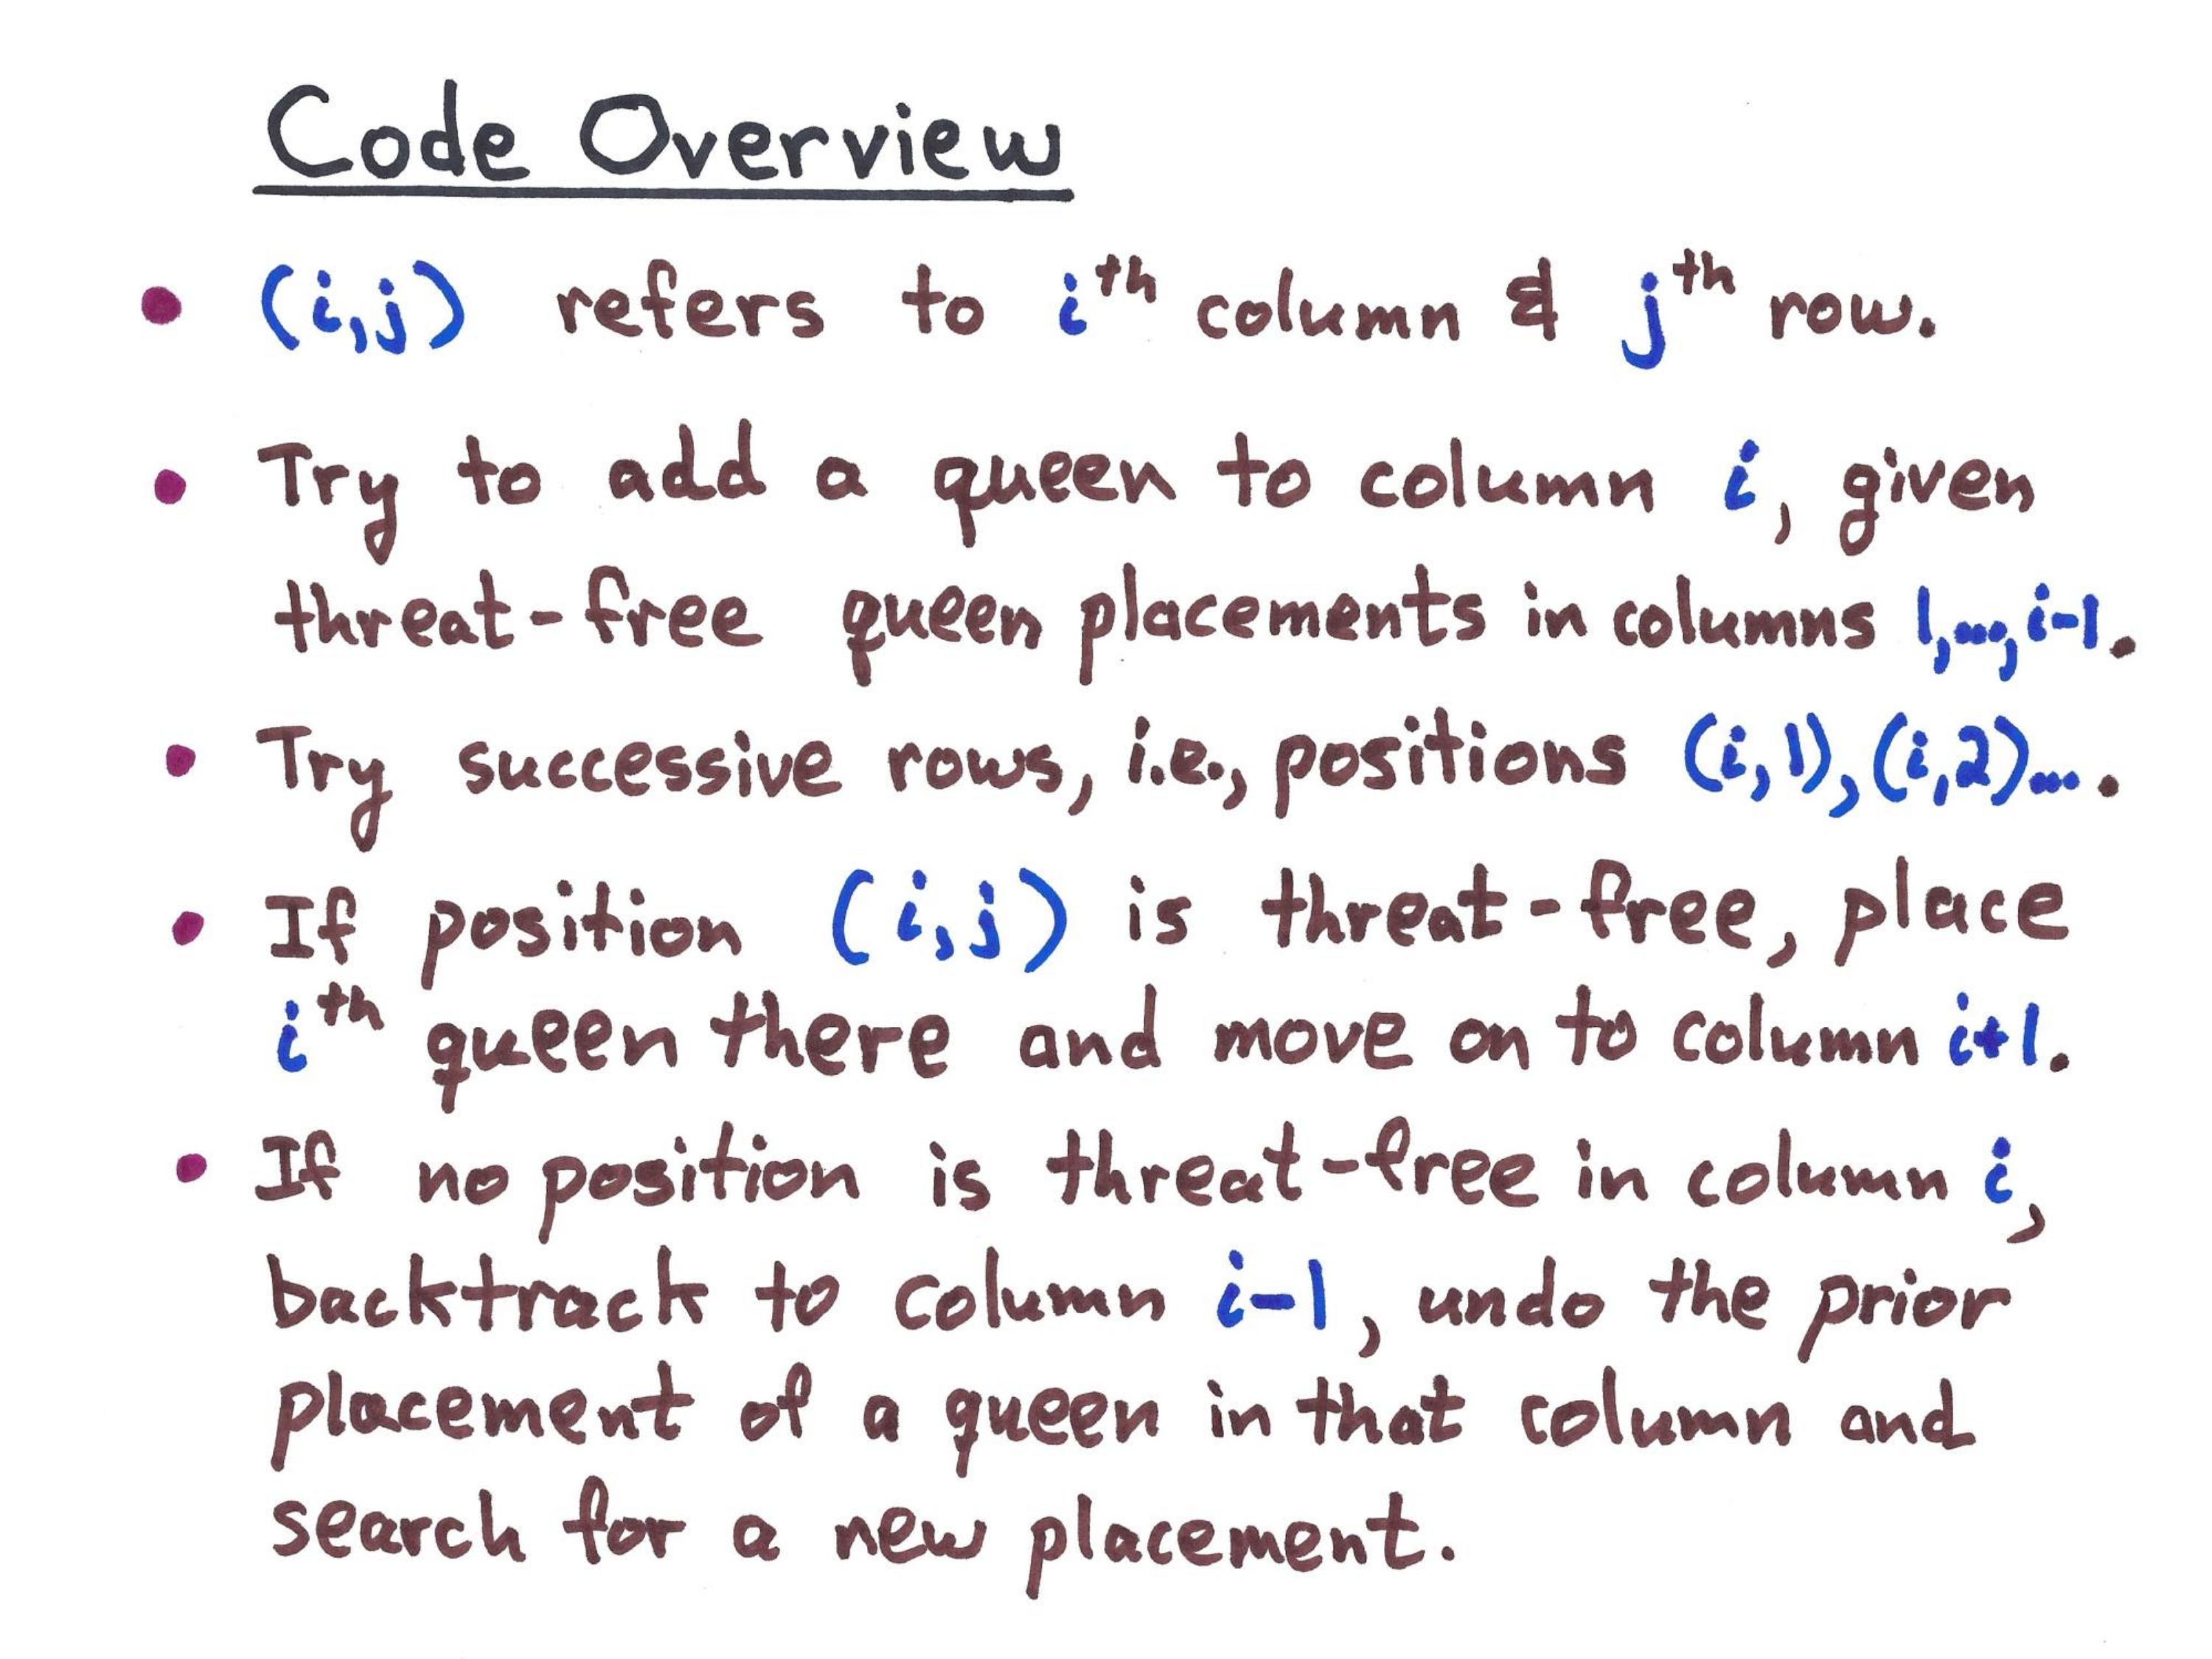 Code Overview
• (i,j) refers to iᵗʰ column & jᵗʰ row.
• Try to add a queen to column i, given
threat-free queen placements in columns 1,...,i-1.
• Try successive rows, i.e., positions (i,1),(i,2)... .
• If position (i,j) is threat-free, place
iᵗʰ queen there and move on to column i+1.
• If no position is threat-free in column i,
backtrack to column i-1, undo the prior
placement of a queen in that column and
search for a new placement.